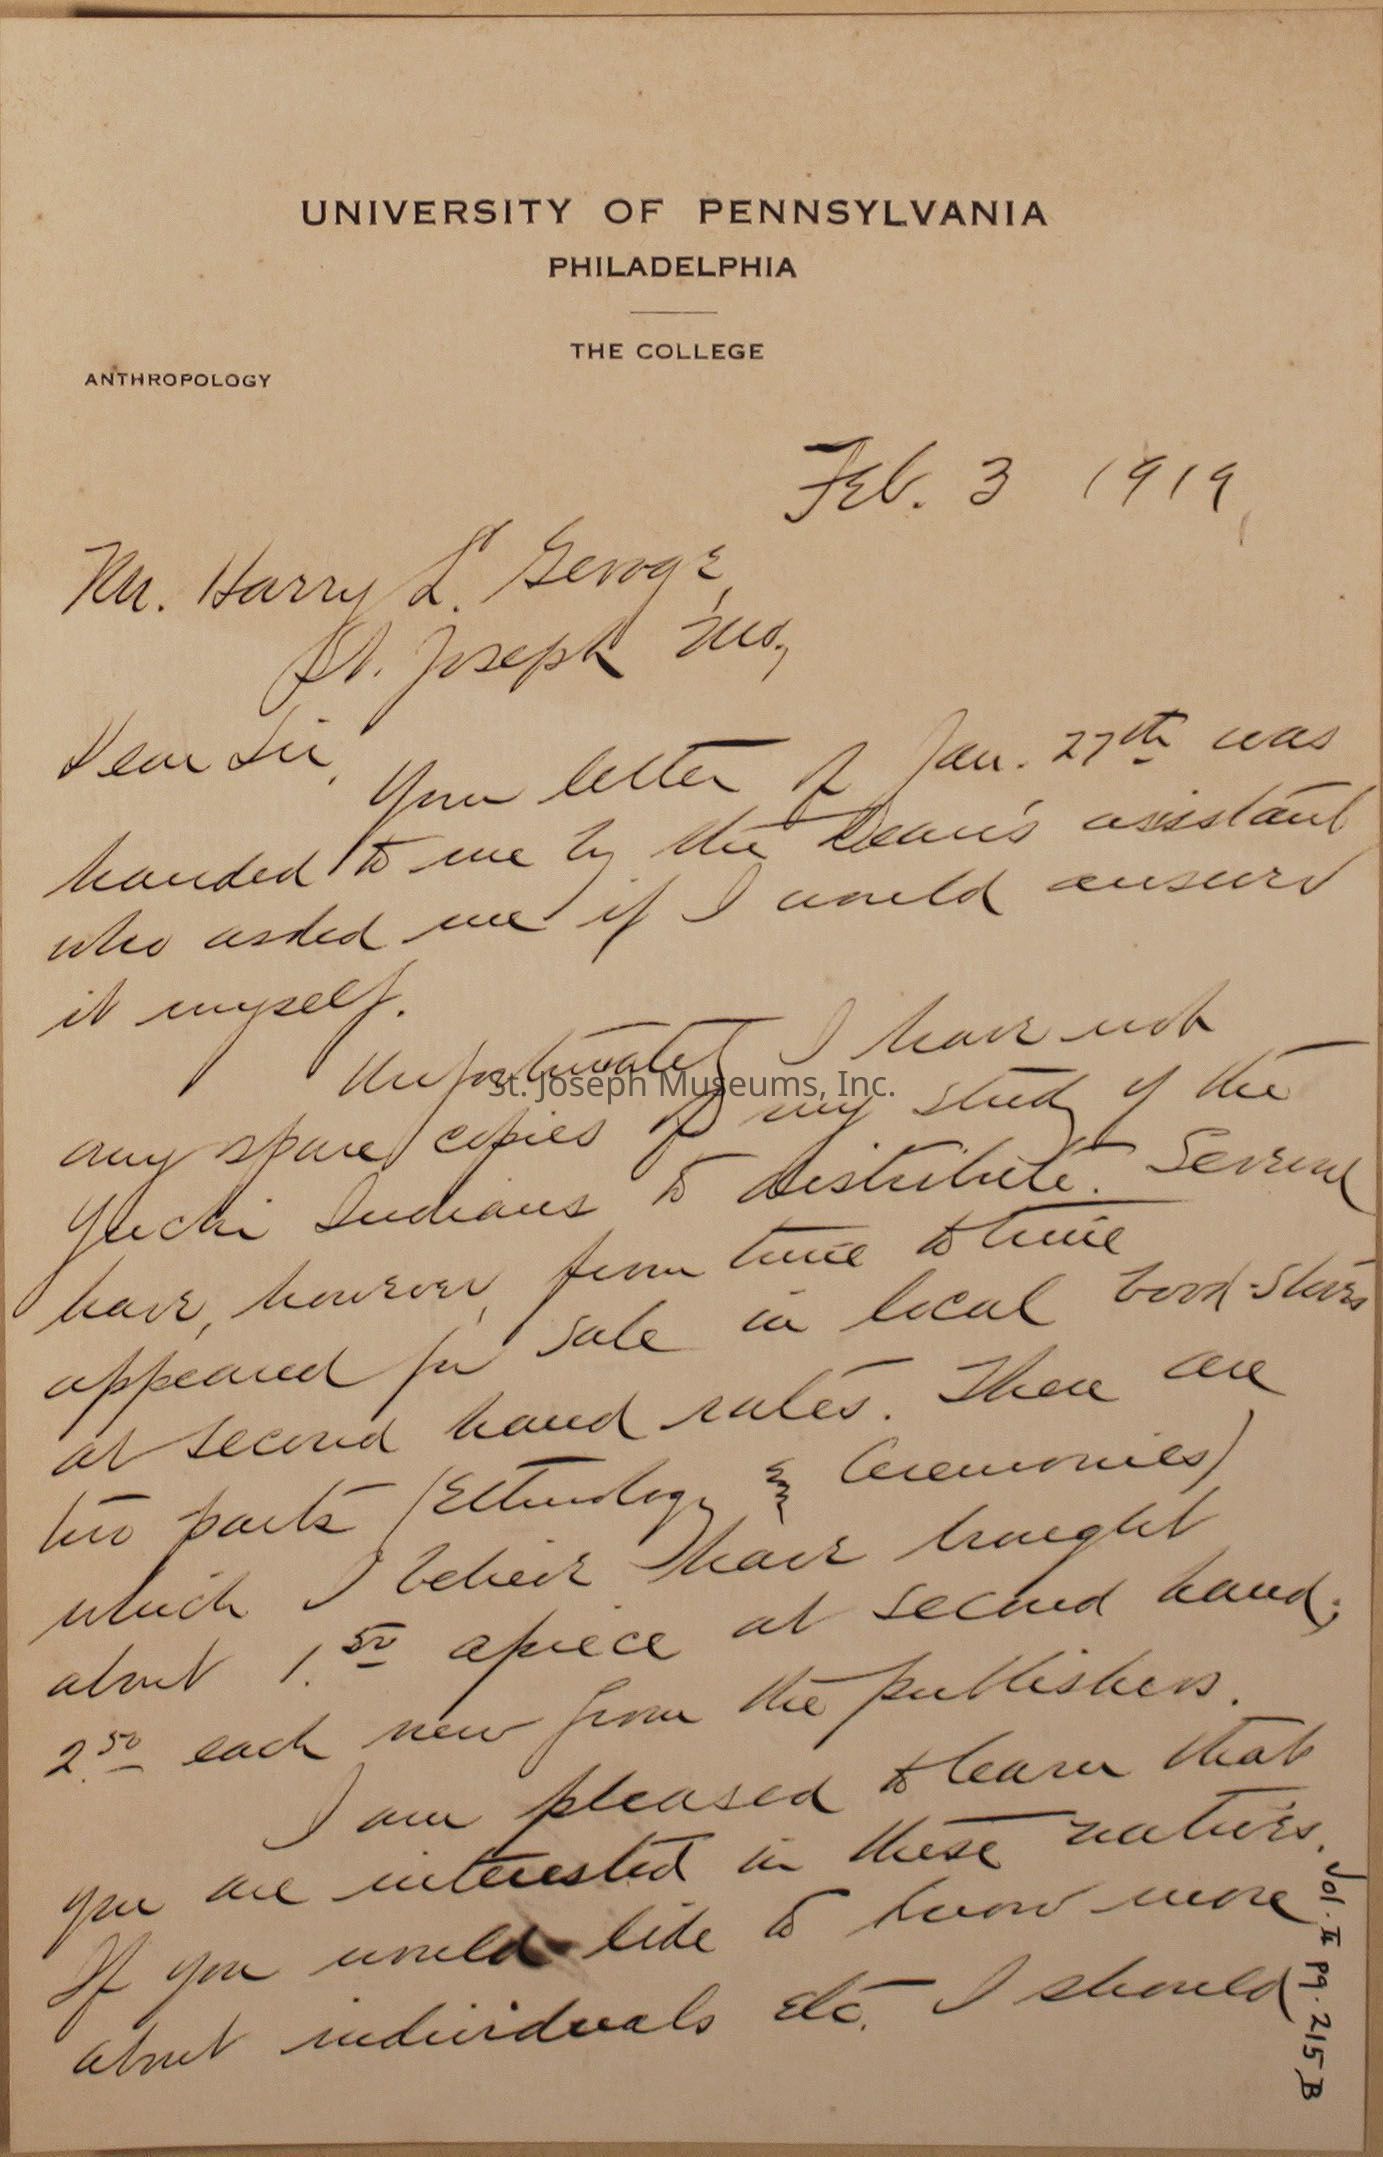 UNIVERSITY OF PENNSYLVANIA
PHILADELPHIA
THE COLLEGE
ANTHROPOLOGY
Feb. 3 1919
Mr. Harry L. George,
St. Joseph Mo,
Dear Sir,
Your letter of Jan. 27th was
handed to me by the Dean's assistant
who asked me if I would answer
it myself.
Unfortunately I have not
any spare copies of my study of the
Yuchi Indians to distribute. Several
have, however, from time to time
appeared for sale in local book-stores
at second hand rates. There are
two parts (Ethnology & Ceremonies)
which I believe have brought
about 1.50 apiece at second hand;
2.50 each new from the publishers.
I am pleased to learn that
you are interested in these natives.
If you would like to know more
about individuals etc. I should
Vol. II pg. 215 B
St. Joseph Museums, Inc.